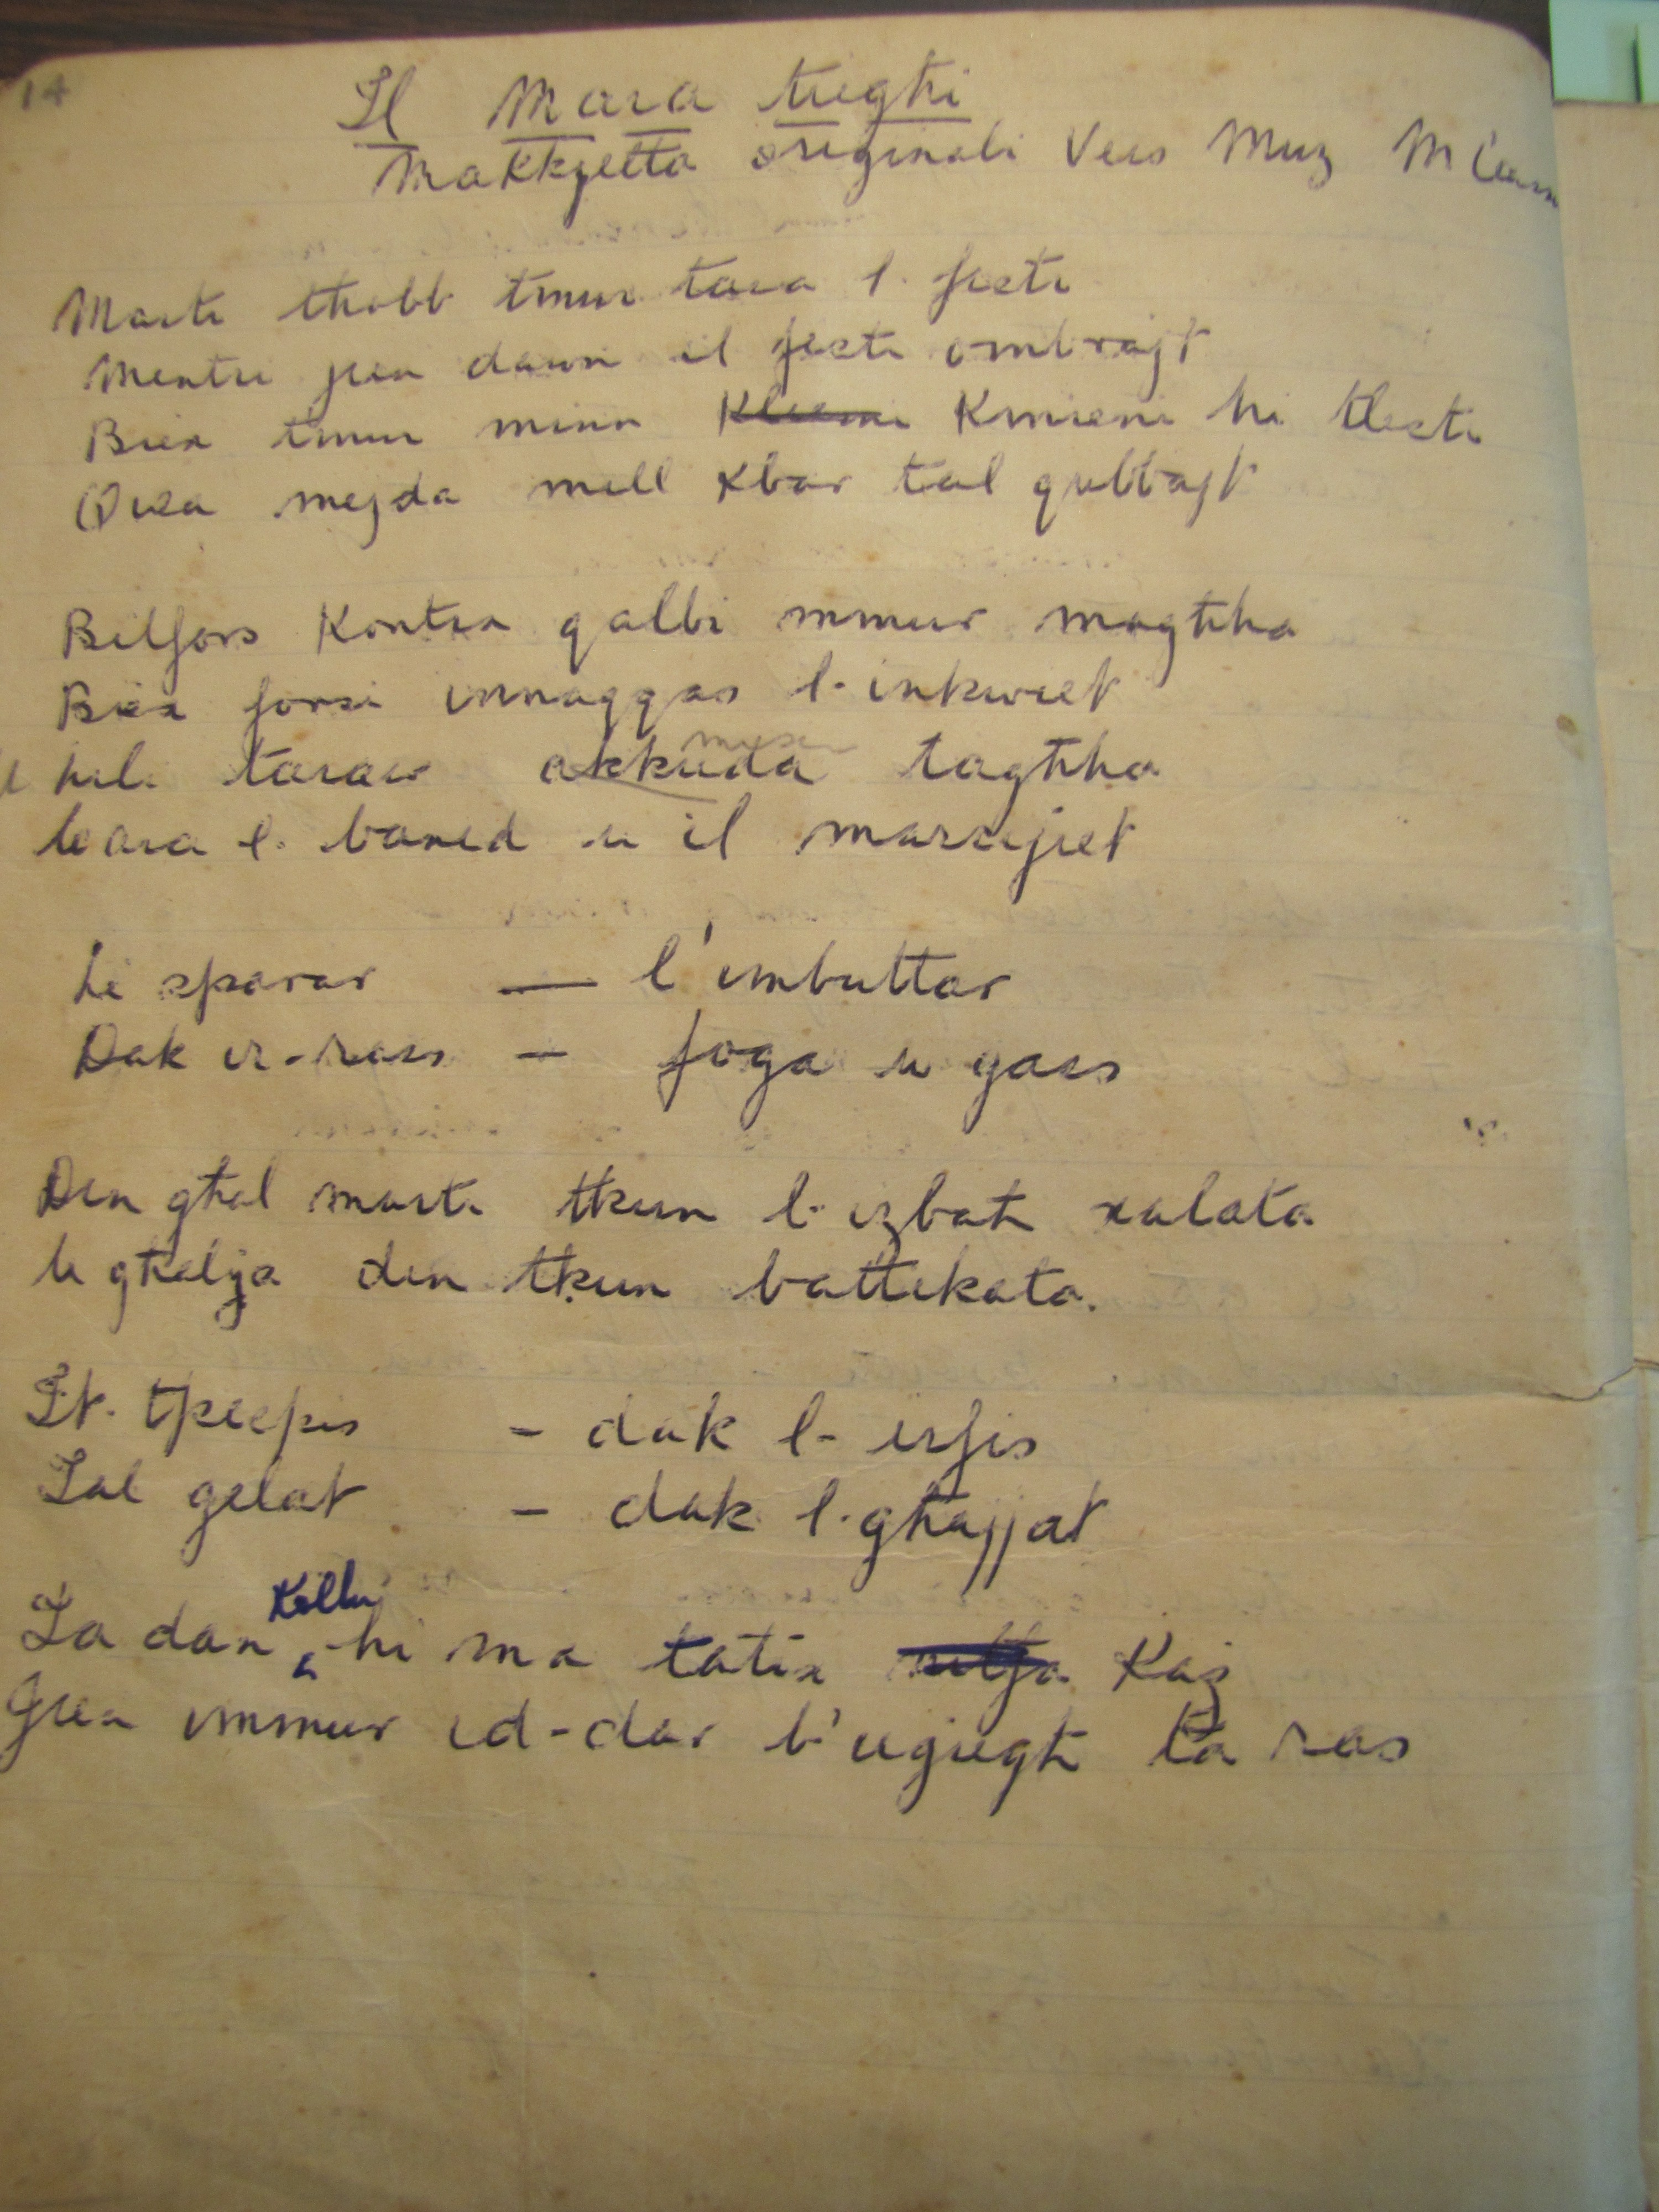 14
Il Mara tieghi
Makkjetta originali Vers Muz M Cam
Marti thobb tmur tara l. festi
Mentri jien dawn il festi ombrajt
Biex tmur minn Kmieni hi tlesti
Qisa mejda mill xbar tal qubbajt
Bilfors Kontra qalbi mmur magħha
Biex forsi innaqqas l-inkwiet
U hili taraw akkuda magħha
U ara l. baned u il marċijiet
Li sparar — l'imbuttar
Dak ir-rass — foga u gass
Din ghal marti tkun l-izbaħ xalata
U ghalija din tkun battikata.
It. tpespis - dak l-irfis
Tal gelat - dak l.għajjat
Ta dan Kollu hi ma tatix Kaz
Jien immur id-dar b'uġiegħ ta ras